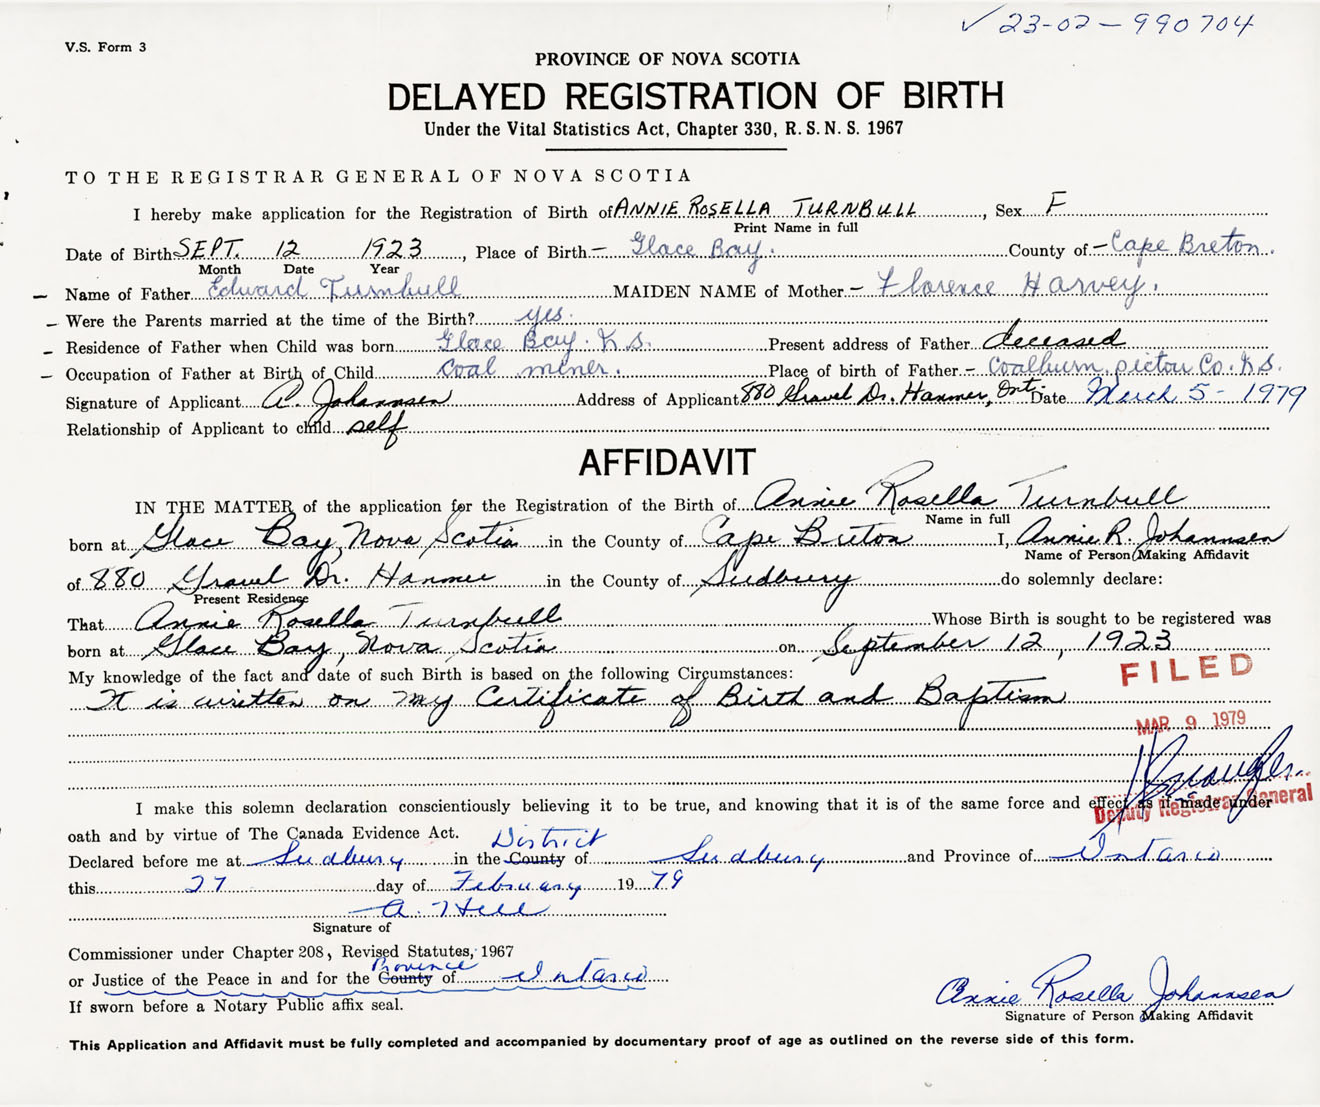 ✓ 23-02-990704
V.S. Form 3
PROVINCE OF NOVA SCOTIA
DELAYED REGISTRATION OF BIRTH
Under the Vital Statistics Act, Chapter 330, R.S.N.S. 1967
TO THE REGISTRAR GENERAL OF NOVA SCOTIA
I hereby make application for the Registration of Birth of ANNIE ROSELLA TURNBULL, Sex F
Print Name in full
Date of Birth SEPT. 12 1923, Place of Birth – Glace Bay. County of – Cape Breton.
Month Date Year
– Name of Father Edward Turnbull MAIDEN NAME of Mother – Florence Harvey.
– Were the Parents married at the time of the Birth? yes.
– Residence of Father when Child was born Glace Bay. N.S. Present address of Father deceased
– Occupation of Father at Birth of Child Coal miner. Place of birth of Father – Coalburn, pictou Co. N.S.
Signature of Applicant A. Johannsen Address of Applicant 880 Gravel Dr. Hanmer, Ont. Date March 5 - 1979
Relationship of Applicant to child self
AFFIDAVIT
IN THE MATTER of the application for the Registration of the Birth of Annie Rosella Turnbull
Name in full
born at Glace Bay, Nova Scotia in the County of Cape Breton I, Annie R. Johannsen
Name of Person Making Affidavit
of 880 Gravel Dr. Hanmer in the County of Sudbury do solemnly declare:
Present Residence
That Annie Rosella Turnbull Whose Birth is sought to be registered was
born at Glace Bay, Nova Scotia on September 12, 1923
My knowledge of the fact and date of such Birth is based on the following Circumstances:
FILED
It is written on my Certificate of Birth and Baptism
MAR 9 1979
I make this solemn declaration conscientiously believing it to be true, and knowing that it is of the same force and effect as if made under
Deputy Registrar General
oath and by virtue of The Canada Evidence Act.
District
Declared before me at Sudbury in the County of Sudbury and Province of Ontario
this 27 day of February 1979
A. Hill
Signature of
Commissioner under Chapter 208, Revised Statutes, 1967
Province
or Justice of the Peace in and for the County of Ontario
If sworn before a Notary Public affix seal.
Annie Rosella Johannsen
Signature of Person Making Affidavit
This Application and Affidavit must be fully completed and accompanied by documentary proof of age as outlined on the reverse side of this form.